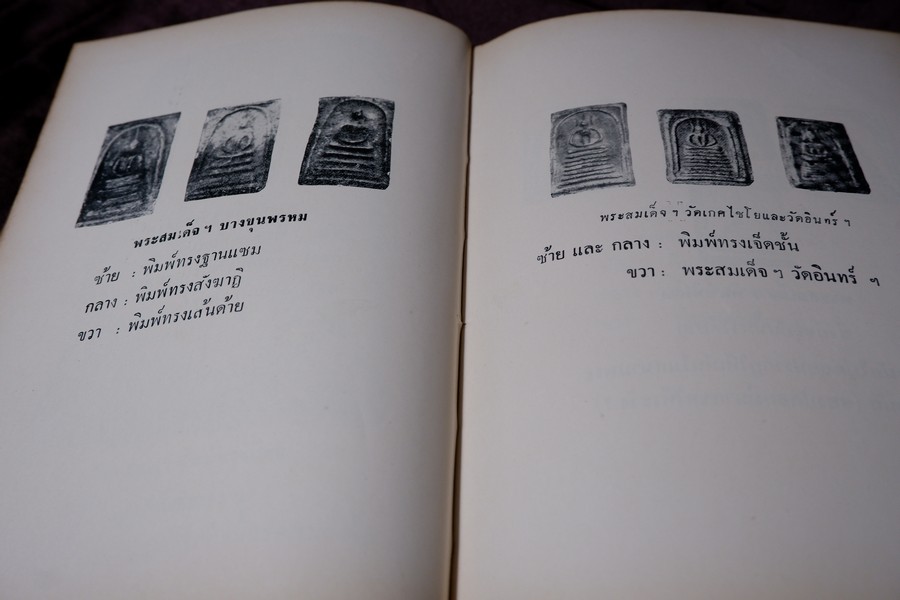 พระสมเด็จฯ บางขุนพรหม
ซ้าย : พิมพ์ทรงฐานแซม
กลาง : พิมพ์ทรงสังฆาฏิ
ขวา : พิมพ์ทรงเส้นด้าย
พระสมเด็จ ฯ วัดเกศไชโยและวัดอินทร์ ฯ
ซ้าย และ กลาง : พิมพ์ทรงเจ็ดชั้น
ขวา : พระสมเด็จ ฯ วัดอินทร์ ฯ